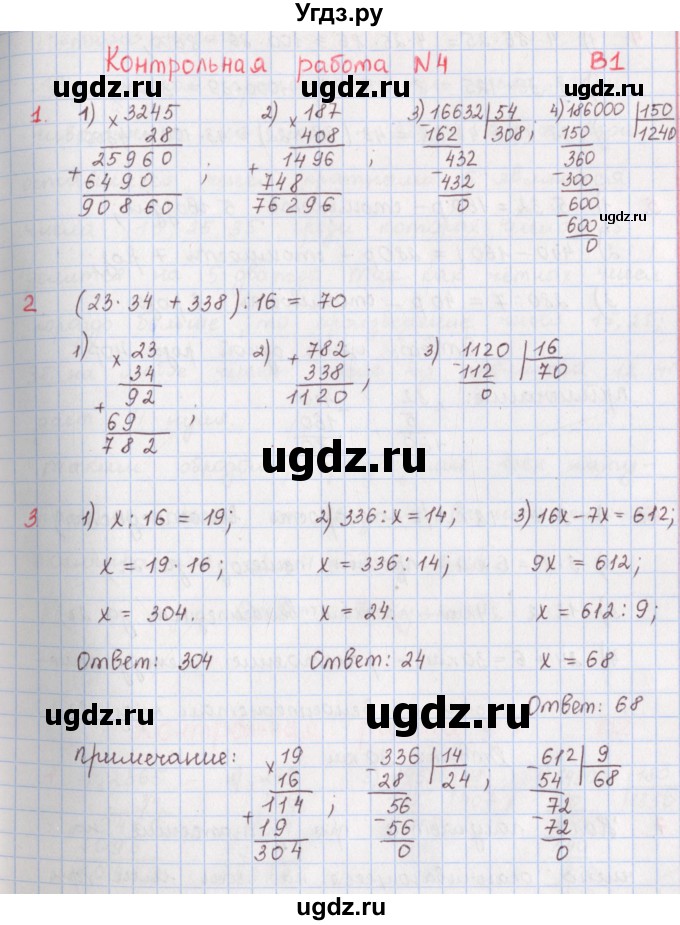 Угдз.ру
Контрольная работа N4 В1
1. 1) × 3245 2) × 187 3) 16632 | 54 4) 186000 | 150
28 408 162 308; 150 1240
25960 1496 432 360
+ 6490 ; + 748 ; - 432 - 300
90860 76296 0 - 600
600
0
2 (23·34 + 338) : 16 = 70
1) × 23 2) + 782 3) - 1120 | 16
34 338 ; 112 70
92 1120 0
+ 69 ;
782
3 1) x : 16 = 19; 2) 336 : x = 14; 3) 16x - 7x = 612;
x = 19·16; x = 336 : 14; 9x = 612;
x = 304. x = 24. x = 612 : 9;
Ответ: 304 Ответ: 24 x = 68
Ответ: 68
Примечание: × 19 - 336 | 14 - 612 | 9
16 28 24; 54 68
114 ; 56 72
+ 19 - 56 - 72
304 0 0
ugdz.ru
ugdz.ru
ugdz.ru
ugdz.ru
ugdz.ru
ugdz.ru
ugdz.ru
ugdz.ru
ugdz.ru
ugdz.ru
ugdz.ru
ugdz.ru
ugdz.ru